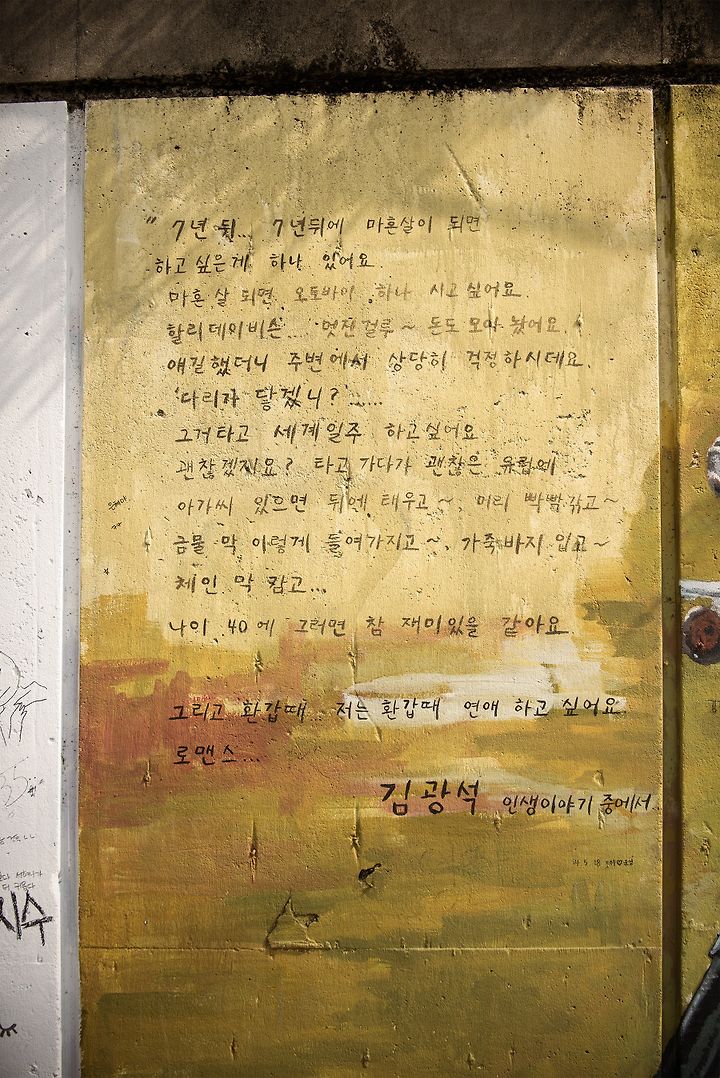 " 7년 뒤... 7년뒤에 마흔살이 되면
하고 싶은게 하나 있어요
마흔 살 되면 오토바이 하나 사고 싶어요
할리데이비슨... 멋진걸루~ 돈도 모아 놨어요.
얘길했더니 주변에서 상당히 걱정하시데요.
'다리가 닿겠니?'......
그거타고 세계일주 하고싶어요
괜찮겠지요? 타고 가다가 괜찮은 유럽에
아가씨 있으면 뒤에 태우고~. 머리 빡빡 깎고~
금물 막 이렇게 들여가지고~. 가죽바지 입고~
체인 막 감고...
나이 40에 그러면 참 재미있을 같아요
그리고 환갑때.. 저는 환갑때 연애 하고 싶어요
로맨스...
김광석 인생이야기 중에서..
지수